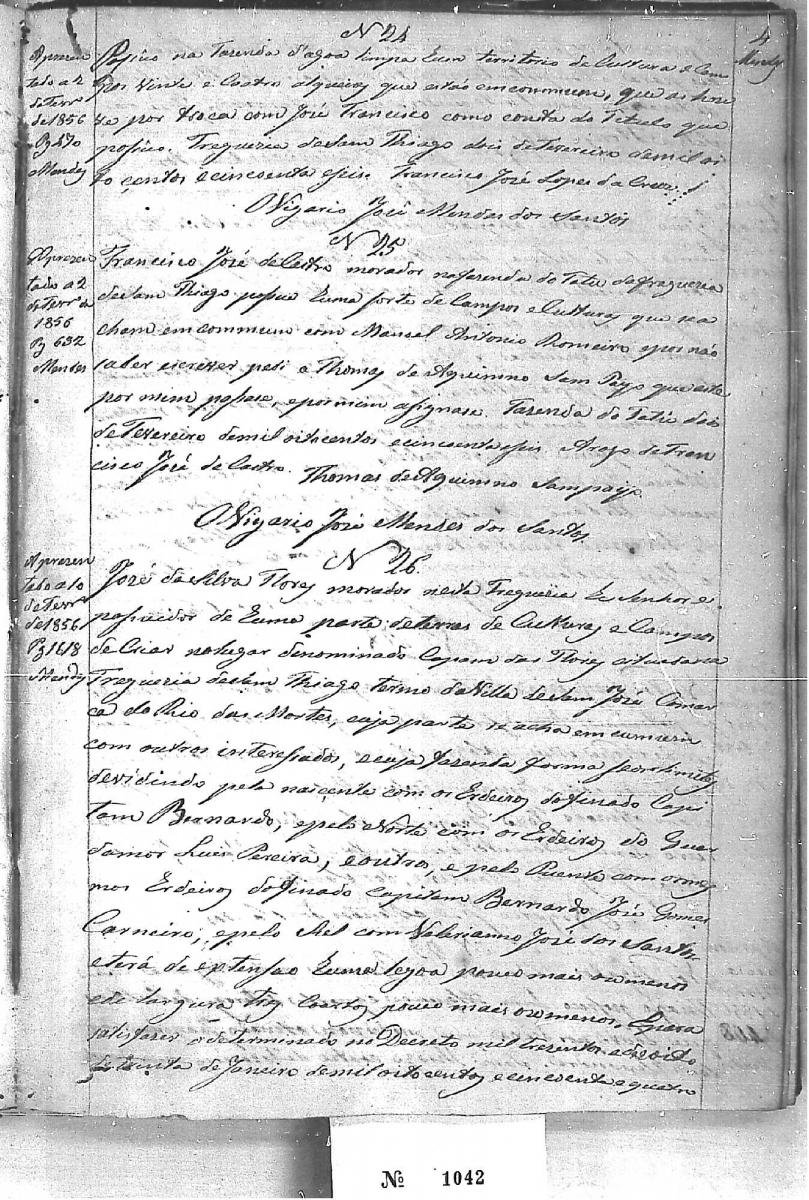 4
Mendes
N 24
Aprezen
tado a 2
de Ferrº
de 1856
Pg 470
Mendes
Posiuo na Fazenda d'agoa limpa Eum territorio de Cultura e Cam
pos vinte e Coatro alqueires que estão em commum, que as houe
ve por troca com José Francisco como consta do Titulo que
posiuo. Fregueria de Sam Thiago dois de Fevereiro de mil oi
to centos e cincoenta e seis. Francisco José Lopes da Cruz
O Vigario José Mendes dos Santos
N 25
Aprezen
tado a 2
de Ferrº de
1856
Pg 632
Mendes
Francisco José de Castro morador na farenda do Tatu da fragueria
de Sam Thiago posiue Euma sorte de Campos e Culturas que se a
cham em commum com Manoel Antonio Romeiro e por não
saber escrever pedi a Thomas de Aquinno Sam Payo que este
por mim pasase, e por mim asignase. Fazenda do Tatú dois
de Fevereiro de mil oitocentos e cincoenta e seis Arogo de Fran
cisco José de Castro. Thomas de Aquinno Sampayo
O Vigario José Mendes dos Santos
N 26
Aprezen
tado a 10
de Ferrº
de 1856
Pg 1618
Mendes
José da Silva Flores morador nesta Fregueria E Senhor e
posuidor de Euma parte de terras de Culturas e Campos
de Criar no lugar denominado Capam das Flores cituada na
Fregueria de Sam Thiago termo da Villa de Sam José Comar
ca do Rio das Mortes, cuja parte se acha em cumum
com outros interesados, e cuja fazenda forma seos limites
devidindo pela nascente com os Erdeiros do finado Capi
tam Bernardo, e pelo Norte com os Erdeiros do Guar
damor Luis Pereira, e outros, e pelo Puente com os mes
mos Erdeiros do finado Capitam Bernardo José Gomes
Carneiro, e pelo Sul com Valerianno José dos Santos
e terá de extensao Euma legoa pouco mais ou menos
e de largura tres Coartos pouco mais ou menos, E para
satisfazer o determinado no Decreto mil trezentos e dezoito
de trinta de Janeiro de mil oito centos e cincoenta e quatro
Nº 1042